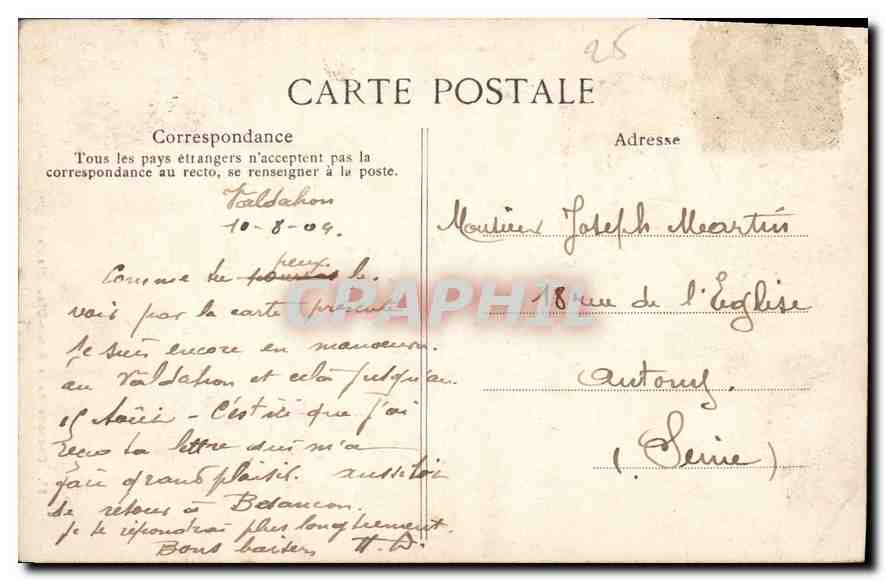 25
CARTE POSTALE
Correspondance
Tous les pays étrangers n'acceptent pas la
correspondance au recto, se renseigner à la poste.
Adresse
Valdahon
10-8-04.
Comme tu pourras peux le
vois par la carte présente
Je suis encore en manoeuvr.
au Valdahon et cela jusqu'au
15 Août - C'est ici que j'ai
reçu ta lettre qui m'a
fait grand plaisir. aussitôt
de retour à Besancon.
je te répondrai plus longuement.
Bons baisers H. D.
Monsieur Joseph Martin
18 rue de l'Eglise
Antony.
(Seine)
CPAPHIL